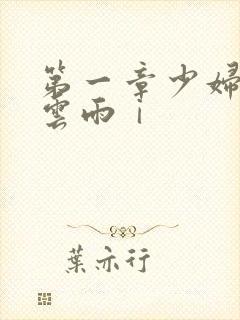 第一章少婦
雲雨｜
葉亦行